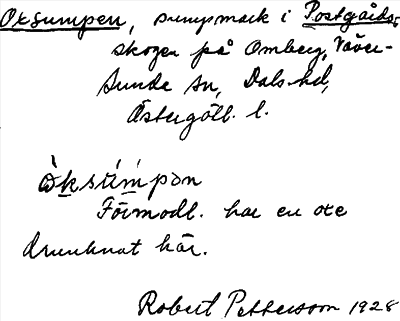 Oxsumpen, sumpmark i Postgårds-
skogen på Omberg, Väver-
sunda sn, Dals hd,
Östergötl. l.
ò̀ksúmpən
Förmodl. har en oxe
drunknat här.
Robert Pettersson 1928